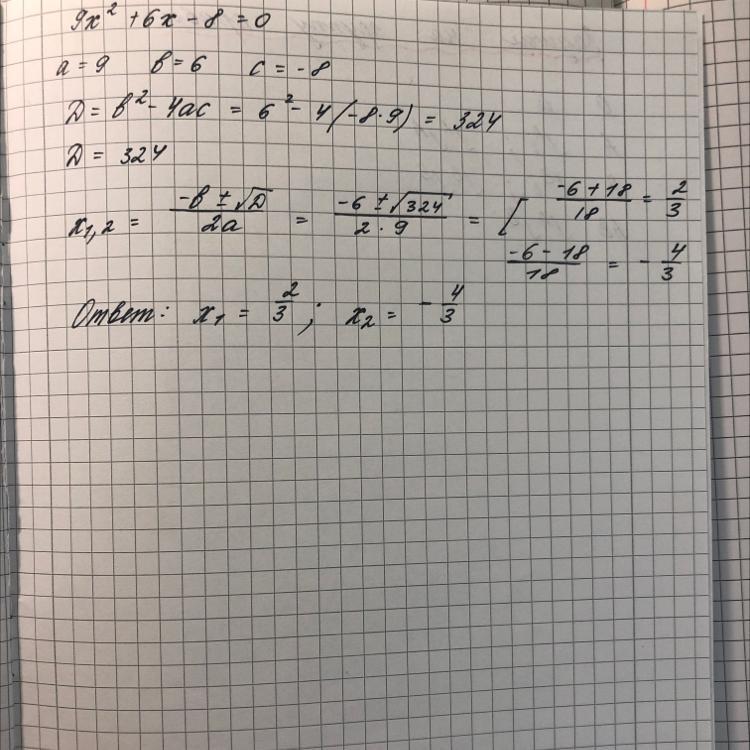 9x² + 6x - 8 = 0
a = 9 в = 6 c = -8
Д = в² - 4ac = 6² - 4(-8·9) = 324
Д = 324
x₁,₂ = (-в ± √Д)/(2a) = (-6 ± √324)/(2·9) = [ (-6+18)/18 = 2/3
(-6-18)/18 = -4/3
Ответ: x₁ = 2/3; x₂ = -4/3